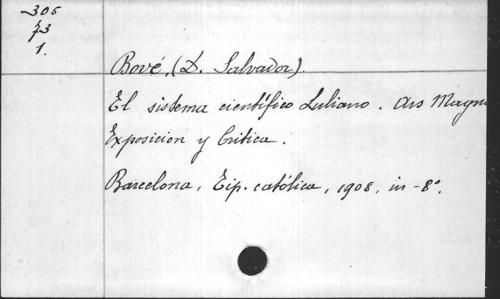 306
73
1.
Bové, (D. Salvador).
El sistema científico Luliano. Ars Magna
Exposicion y Critica.
Barcelona, Tip. católica, 1908, in-8°.